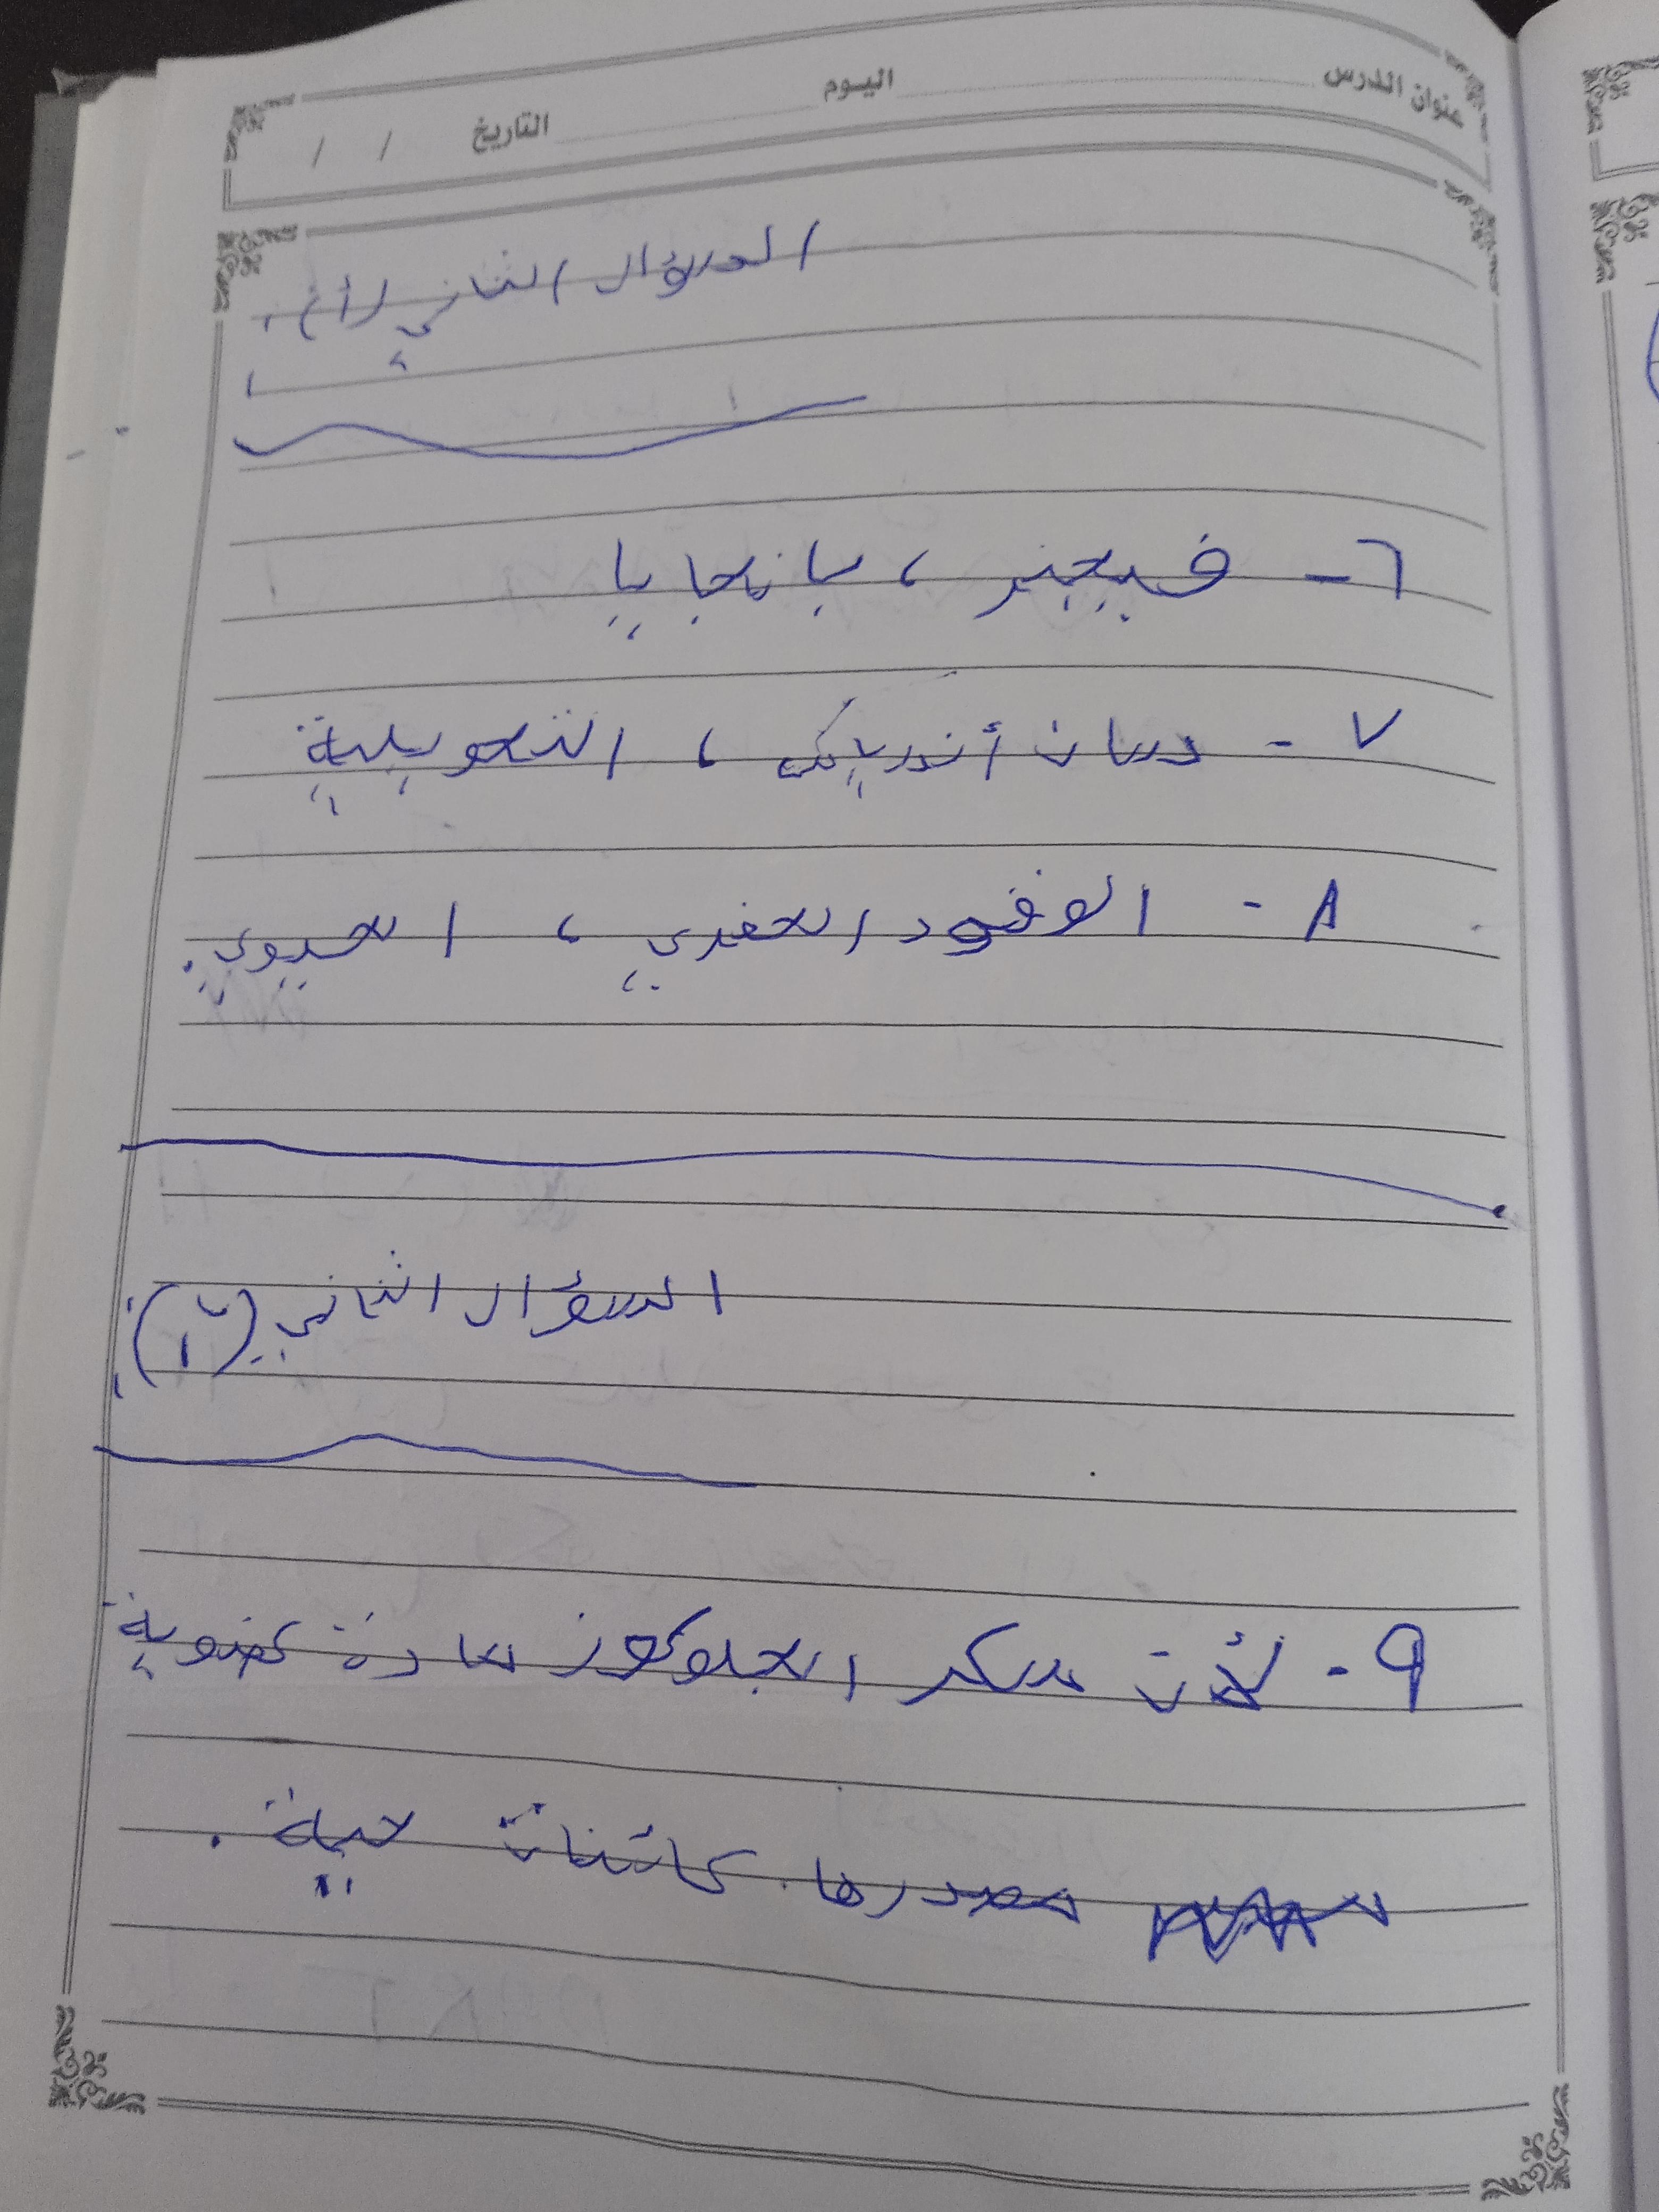 عنوان الدرس اليوم التاريخ / /
السؤال الثاني (أ) :
٦- فيجنر ، بانجايا
٧- سان أندرياس ، التحويلية
٨- الوقود الحفري ، الحيوي .
السؤال الثاني (ب) :
٩- لأن سكر الجلوكوز مادة عضوية
مصدرها كائنات حية .